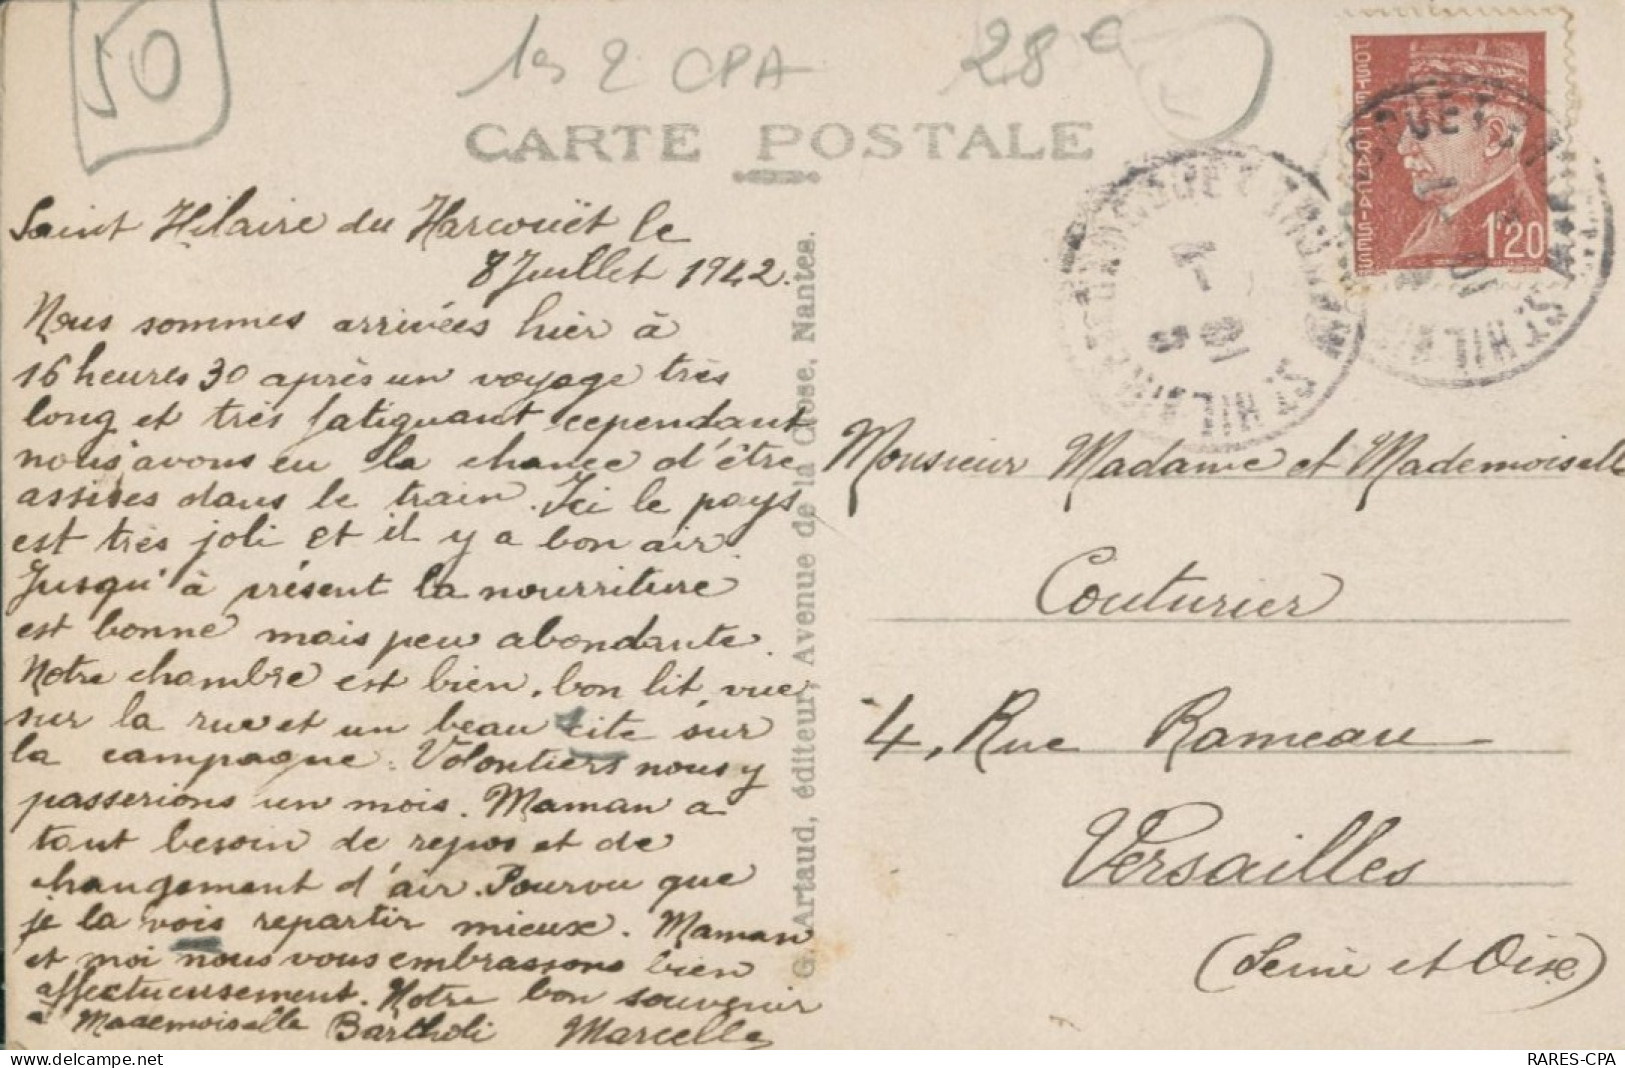 50
les 2 CPA 28 €
CARTE POSTALE
POSTES FRANÇAISES
1F20
ST HILAIRE DU HARCOUET
MANCHE
Saint Hilaire du Harcouët le
8 Juillet 1942.
Nous sommes arrivées hier à
16 heures 30 après un voyage très
long et très fatiguant cependant
nous avons eu la chance d'être
assises dans le train. Ici le pays
est très joli et il y a bon air.
Jusqu'à présent la nourriture
est bonne mais peu abondante.
Notre chambre est bien, bon lit, vue
sur la rue et un beau site sur
la campagne. Volontiers nous y
passerions un mois. Maman a
tant besoin de repos et de
changement d'air. Pourvu que
je la vois repartir mieux. Maman
et moi nous vous embrassons bien
affectueusement. Notre bon souvenir
a Mademoiselle Bartholi Marcelle
G. Artaud, éditeur, Avenue de la Close, Nantes.
Monsieur Madame et Mademoiselle
Couturier
4, Rue Rameau
Versailles
(Seine et Oise)
delcampe.net
RARES-CPA